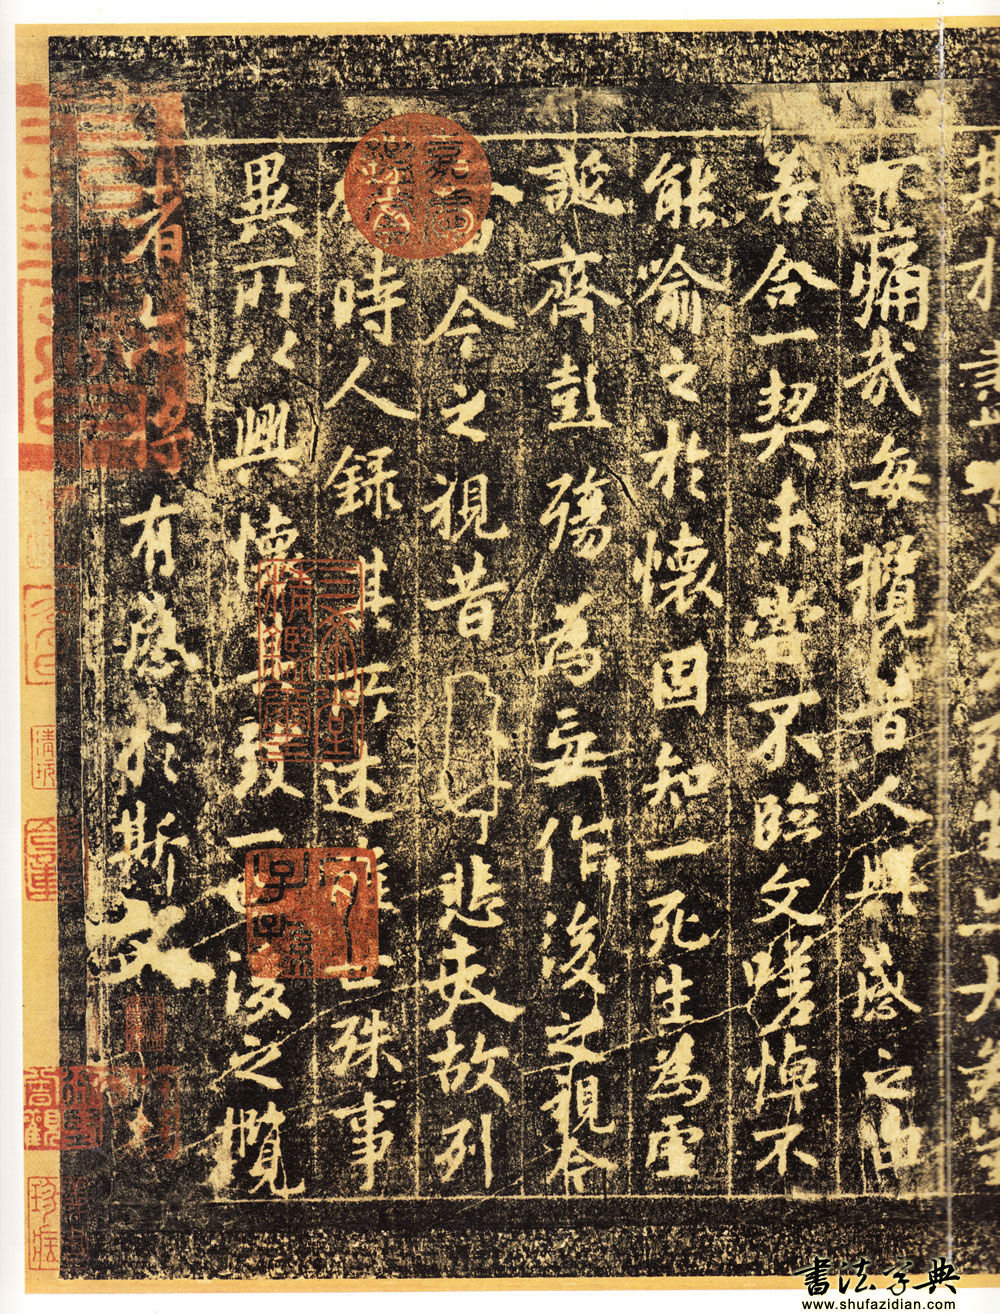 期於盡古人云死生亦大矣豈
不痛哉每攬昔人興感之由
若合一契未嘗不臨文嗟悼不
能喻之於懷固知一死生為虛
誕齊彭殤為妄作後之視今
亦由今之視昔悲夫故列
敘時人錄其所述雖世殊事
異所以興懷其致一也後之攬
者亦將有感於斯文
書法字典
www.shufazidian.com